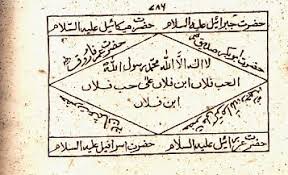 ٧٨٦
حضرت جبرائیل علیہ السلام حضرت میکائیل علیہ السلام
حضرت ابوبکر صدیق رضی حضرت عمر فاروق رضی
لا الہ الا اللہ محمد رسول اللہ
الحب فلاں ابن فلاں علی حب فلاں
ابن فلاں
حضرت عثمان حضرت علی
حضرت عزرائیل علیہ السلام حضرت اسرافیل علیہ السلام